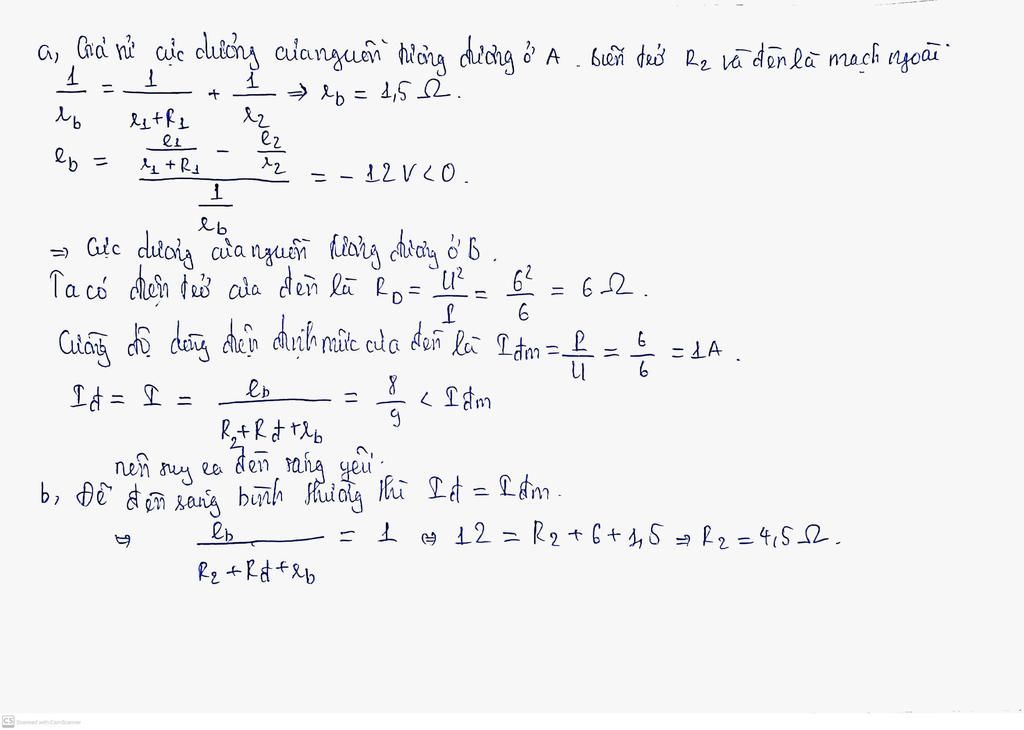 a, Giả sử cực dương của nguồn tương đương ở A. biến trở R2 và đèn là mạch ngoài
1/rb = 1/(r1+R1) + 1/r2 ⇒ rb = 1,5 Ω.
eb = (e1/(r1+R1) - e2/r2)/(1/rb) = - 12V < 0.
⇒ Cực dương của nguồn tương đương ở B.
Ta có điện trở của đèn là RD = U²/P = 6²/6 = 6 Ω.
Cường độ dòng điện định mức của đèn là Iđm = P/U = 6/6 = 1A.
Iđ = I = eb/(R2+Rđ+rb) = 8/9 < Iđm
nên suy ra đèn sáng yếu.
b, Để đèn sáng bình thường thì Iđ = Iđm.
⇔ eb/(R2+Rđ+rb) = 1 ⇔ 12 = R2 + 6 + 1,5 ⇒ R2 = 4,5 Ω.
CS Scanned with CamScanner